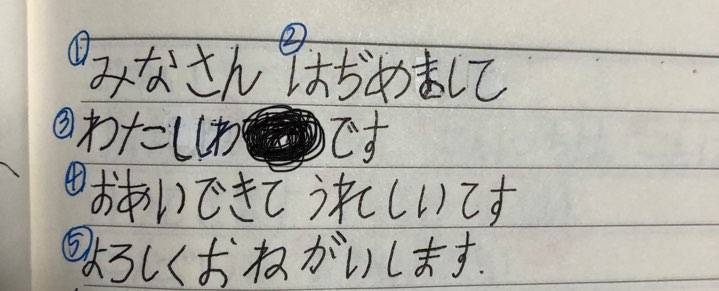 ① みなさん ② はぢめまして
③ わたししわ です
④ おあいできて うれしいてす
⑤ よろしくおねがいします.